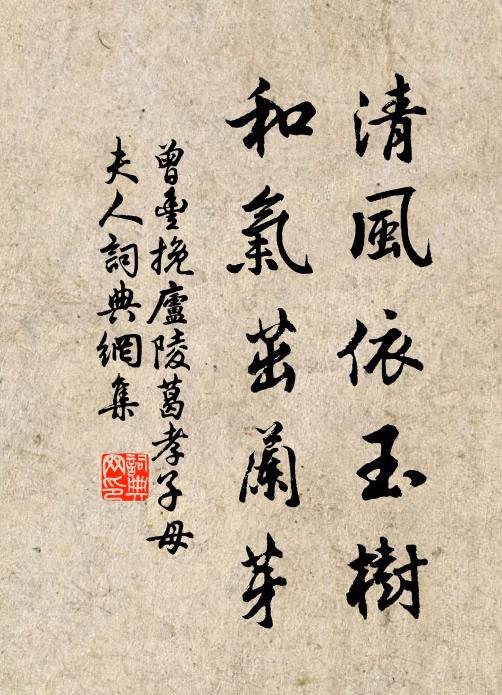 清風依玉樹
和氣茁蘭芽
曾豐挽廬陵葛孝子母
夫人詞典網集
詞典
网印